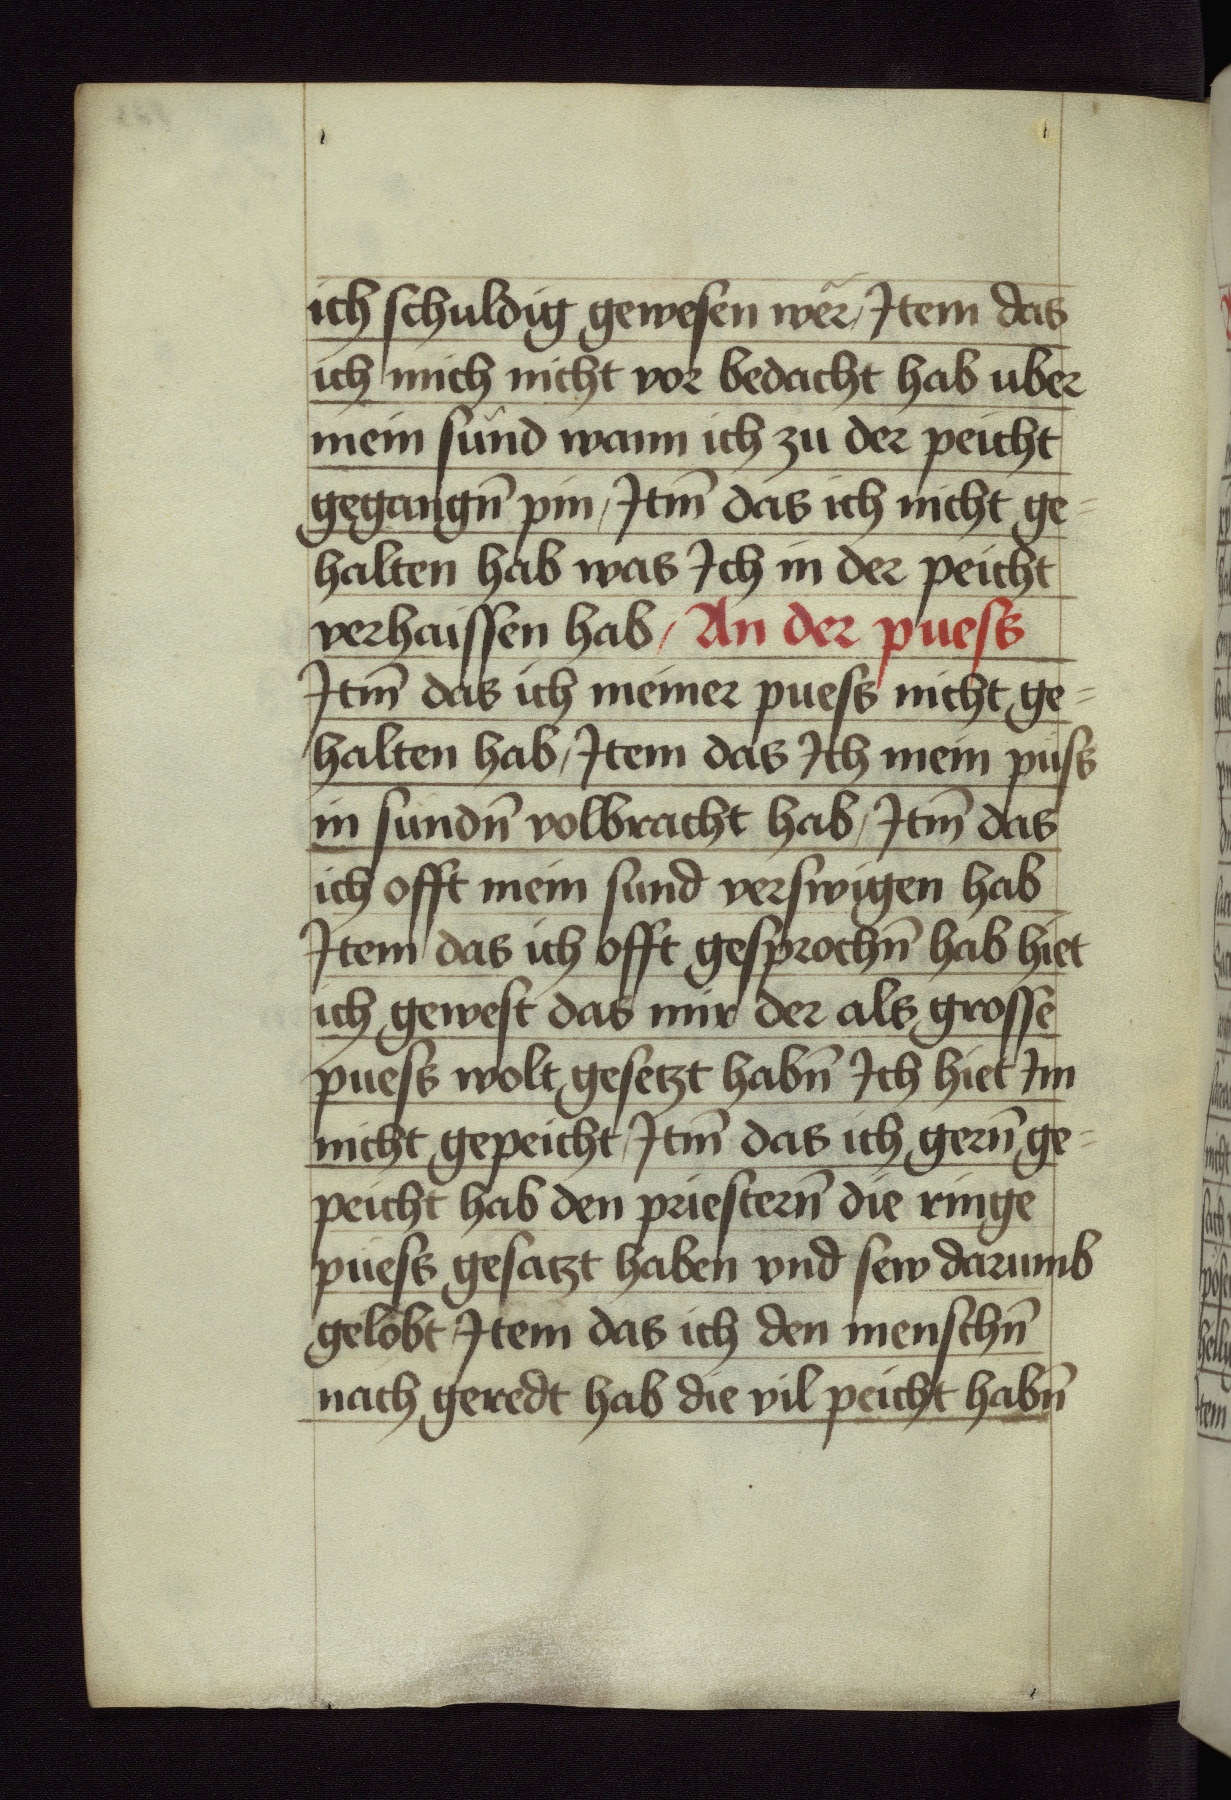 ich schuldig gewesen wer̃ / Item das
ich mich nicht vor bedacht hab uber
mein sund wann ich zu der peicht
gegangn̄ pin / Itm̄ das ich nicht ge=
halten hab was Ich in der peicht
verhaissen hab / An der puess
Itm̄ das ich meiner puess nicht ge=
halten hab / Item das Ich mein puss
in sundn̄ volbracht hab / Itm̄ das
ich offt mein sund verswigen hab
Item das ich offt gesprochn̄ hab hiet
ich gewest das mir der als grosse
puess wolt gesetzt habn̄ Ich hiet Im
nicht gepeicht / Itm̄ das ich gern̄ ge=
peicht hab den priestern̄ die ringe
puess gesatzt haben vnd sew darumb
gelobt / Item das ich den menschn̄
nach geredt hab die vil peicht habn̄